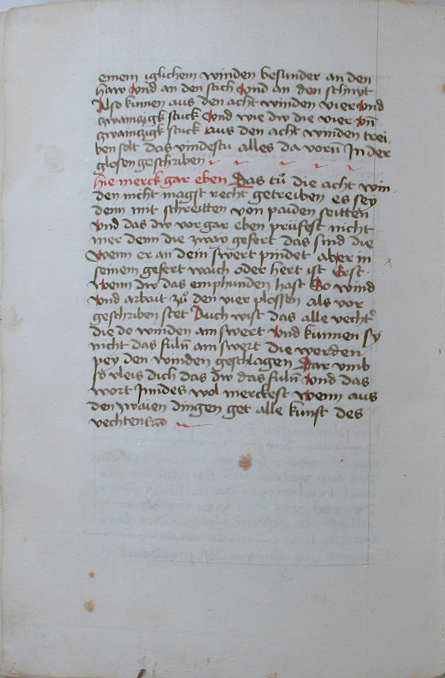 einem iglichem winden besunder an den
haw Vnd an den stich Vnd an den schnyt
Also kumen aus den acht winden vier Vnd
zwainczigk stuck Vnd wie dw die vier vñ
zwainczigk stuck aus den acht winden trei
ben solt das vindestu alles da vorñ In der
glosen geschriben
hie merck gar eben Das tũ die acht win
den nicht magst recht getreiben es sey
denn mit schreitten von paiden seitten
Vnd das dw vor gar eben prüfest nicht
mer denn die zway gefert das sind die
Wenn er an dein swert pindet aber in
seinem gefert waich oder hert ist Erst
wenn dw das emphunden hast So wind
Vnd arbait zü den vier plossen als vor
geschriben stet Auch wist das alle vechtr̃
die do winden am swert Vnd kunnen sy
nicht das fulñ am swert die werden
pey den winden geschlagen Dar vmb
so vleis dich das dw das fulñ Vnd das
wort Inndes wol merckest Wenn aus
den zwaien dingen get alle kunst des
vechtens